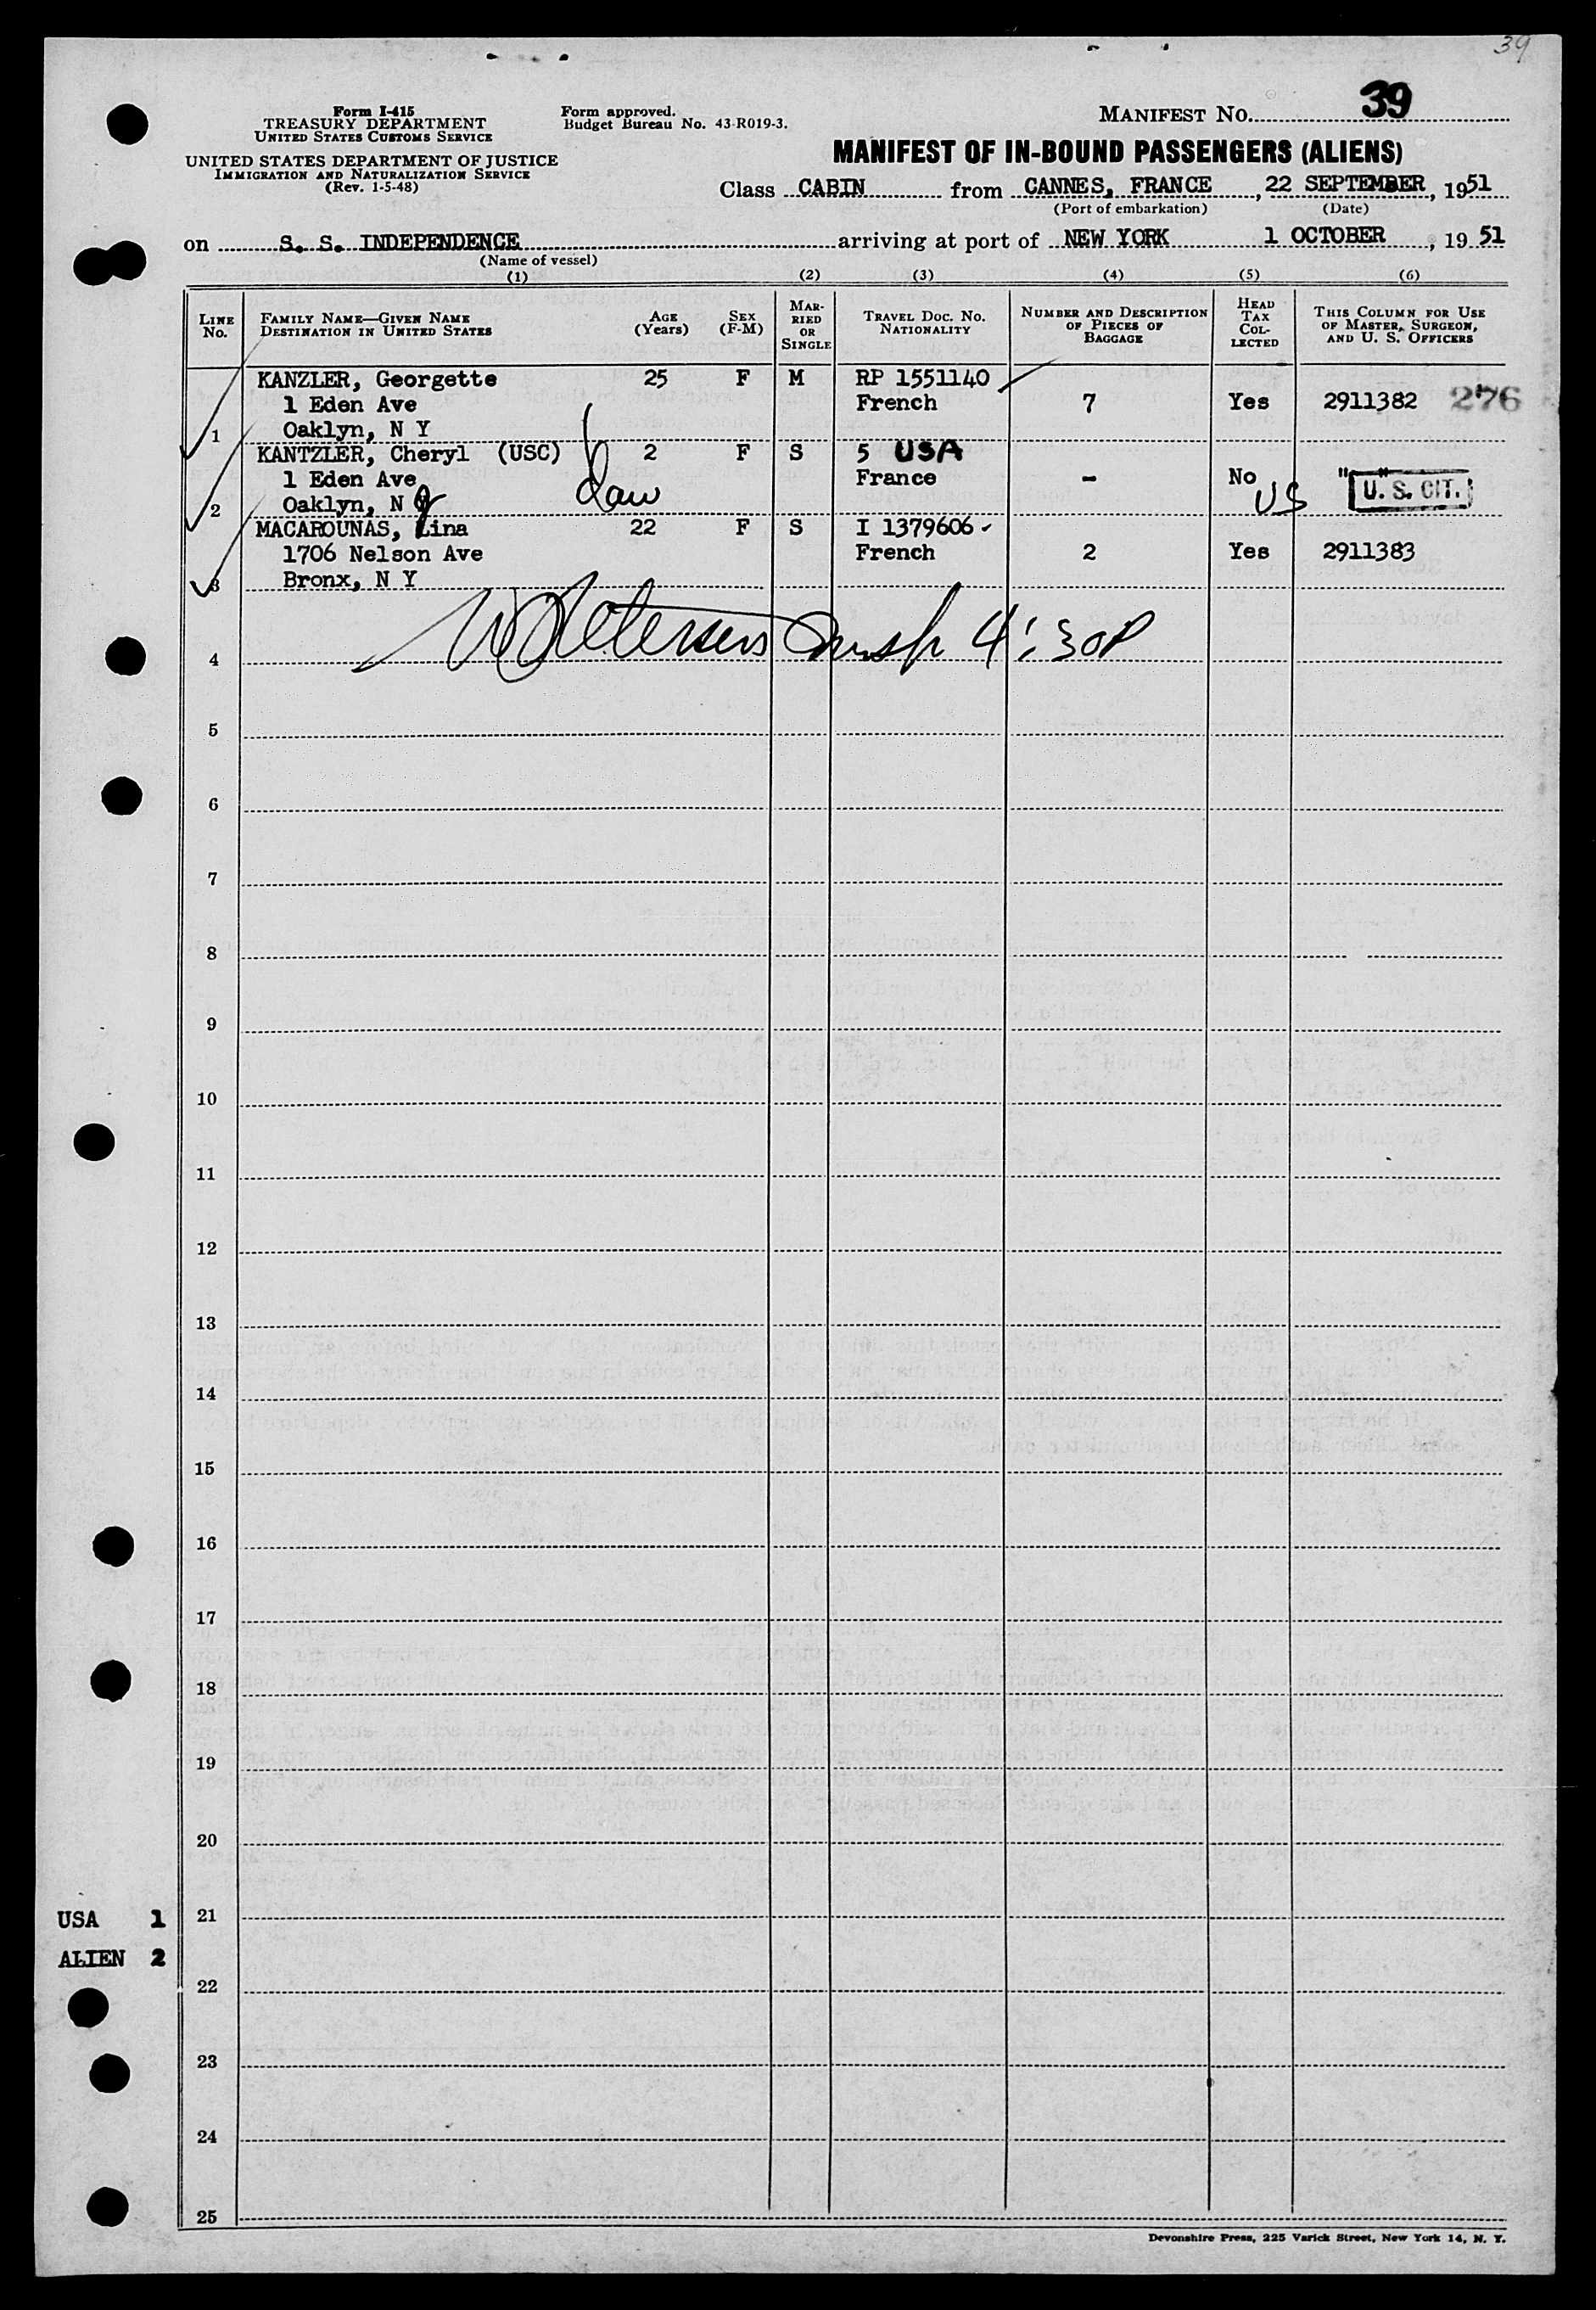 39
Form I-415
TREASURY DEPARTMENT
UNITED STATES CUSTOMS SERVICE
UNITED STATES DEPARTMENT OF JUSTICE
IMMIGRATION AND NATURALIZATION SERVICE
(Rev. 1-5-48)
Form approved.
Budget Bureau No. 43-R019-3.
MANIFEST NO. 39
MANIFEST OF IN-BOUND PASSENGERS (ALIENS)
Class CABIN from CANNES, FRANCE, 22 SEPTEMBER, 1951
(Port of embarkation) (Date)
on S. S. INDEPENDENCE arriving at port of NEW YORK 1 OCTOBER, 19 51
(Name of vessel)
(1) (2) (3) (4) (5) (6)
LINE No. FAMILY NAME—GIVEN NAME DESTINATION IN UNITED STATES AGE (Years) SEX (F-M) MARRIED OR SINGLE TRAVEL DOC. NO. NATIONALITY NUMBER AND DESCRIPTION OF PIECES OF BAGGAGE HEAD TAX COLLECTED THIS COLUMN FOR USE OF MASTER, SURGEON, AND U. S. OFFICERS
KANZLER, Georgette 25 F M RP 1551140
1 Eden Ave French 7 Yes 2911382 276
1 Oaklyn, N Y
KANTZLER, Cheryl (USC) 2 F S 5 USA
1 Eden Ave France - No " "
US U. S. CIT.
2 Oaklyn, N Y
MACAROUNAS, Lina 22 F S I 1379606
1706 Nelson Ave French 2 Yes 2911383
3 Bronx, N Y
4 4:30P
5
6
7
8
9
10
11
12
13
14
15
16
17
18
19
20
USA 1 21
ALIEN 2
22
23
24
25
Devonshire Press, 225 Varick Street, New York 14, N. Y.